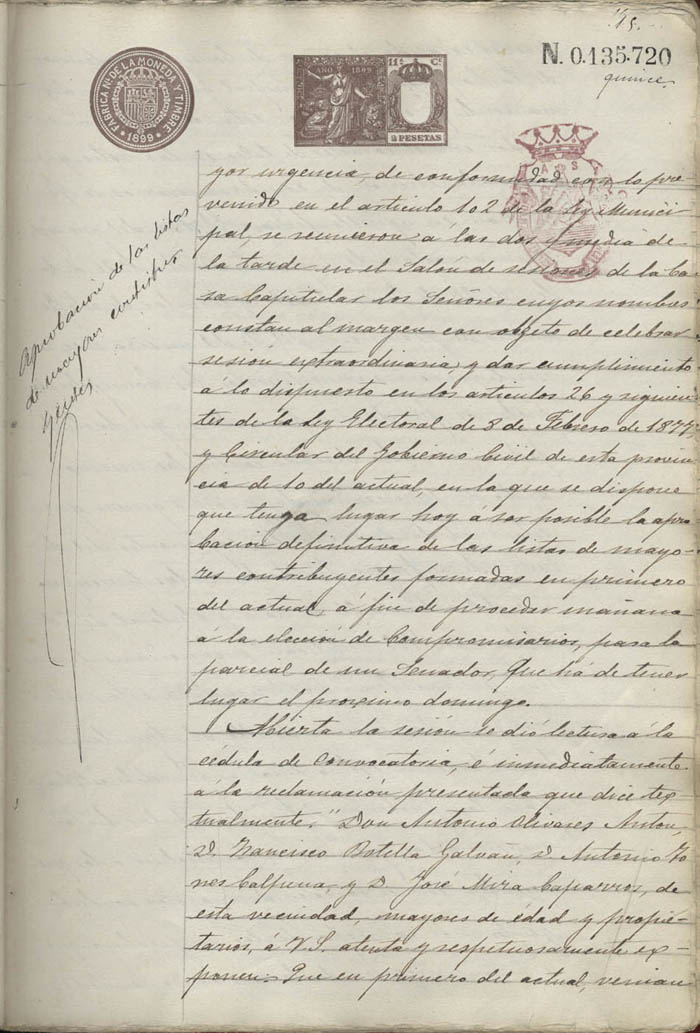 15.
N. 0.135.720
quince
FABRICA NAL DE LA MONEDA Y TIMBRE
1899
AÑO 1899
11ª Cª
2 PESETAS
Aprobación de las listas
de mayores contribu-
yentes
yor urgencia, de conformidad con lo pre-
venido en el articulo 102 de la Ley Munici-
pal, se reunieron á las dos y media de
la tarde en el Salón de sesiones de la Ca-
sa Capitular los Señores cuyos nombres
constan al margen con objeto de celebrar
sesión extraordinaria, y dar cumplimiento
á lo dispuesto en los articulos 26 y siguien-
tes de la Ley Electoral de 8 de Febrero de 1877
y Circular del Gobierno Civil de esta provin-
cia de 10 del actual, en la que se dispone
que tenga lugar hoy á ser posible la apro-
bación definitiva de las listas de mayo-
res contribuyentes formadas en primero
del actual, á fin de proceder mañana
á la elección de Compromisarios, para la
parcial de un Senador, que há de tener
lugar el proximo domingo.
Abierta la sesión se dió lectura á la
cédula de convocatoria, é inmediatamente
á la reclamación presentada que dice tex-
tualmente. "Don Antonio Olivares Anton,
D. Francisco Botella Galvañ, D. Antonio
Calpena, y D. José Mira Caparros, de
esta vecindad, mayores de edad y propie-
tarios, á V.S. atenta y respetuosamente ex-
ponen: Que en primero del actual, venian